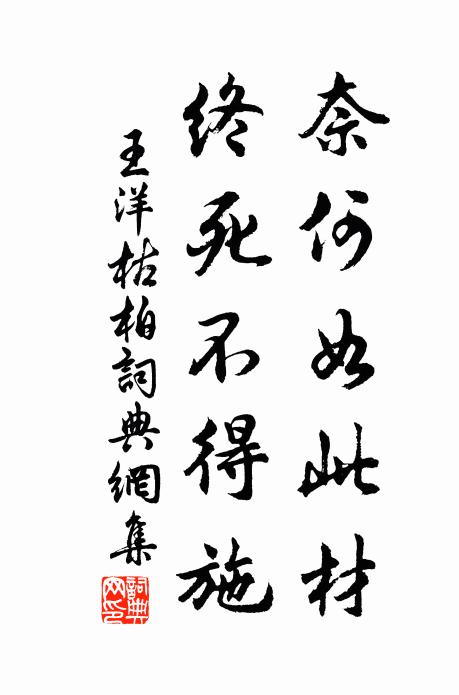 奈何如此材
終死不得施
王洋枯柏詞典網集
詞典網印